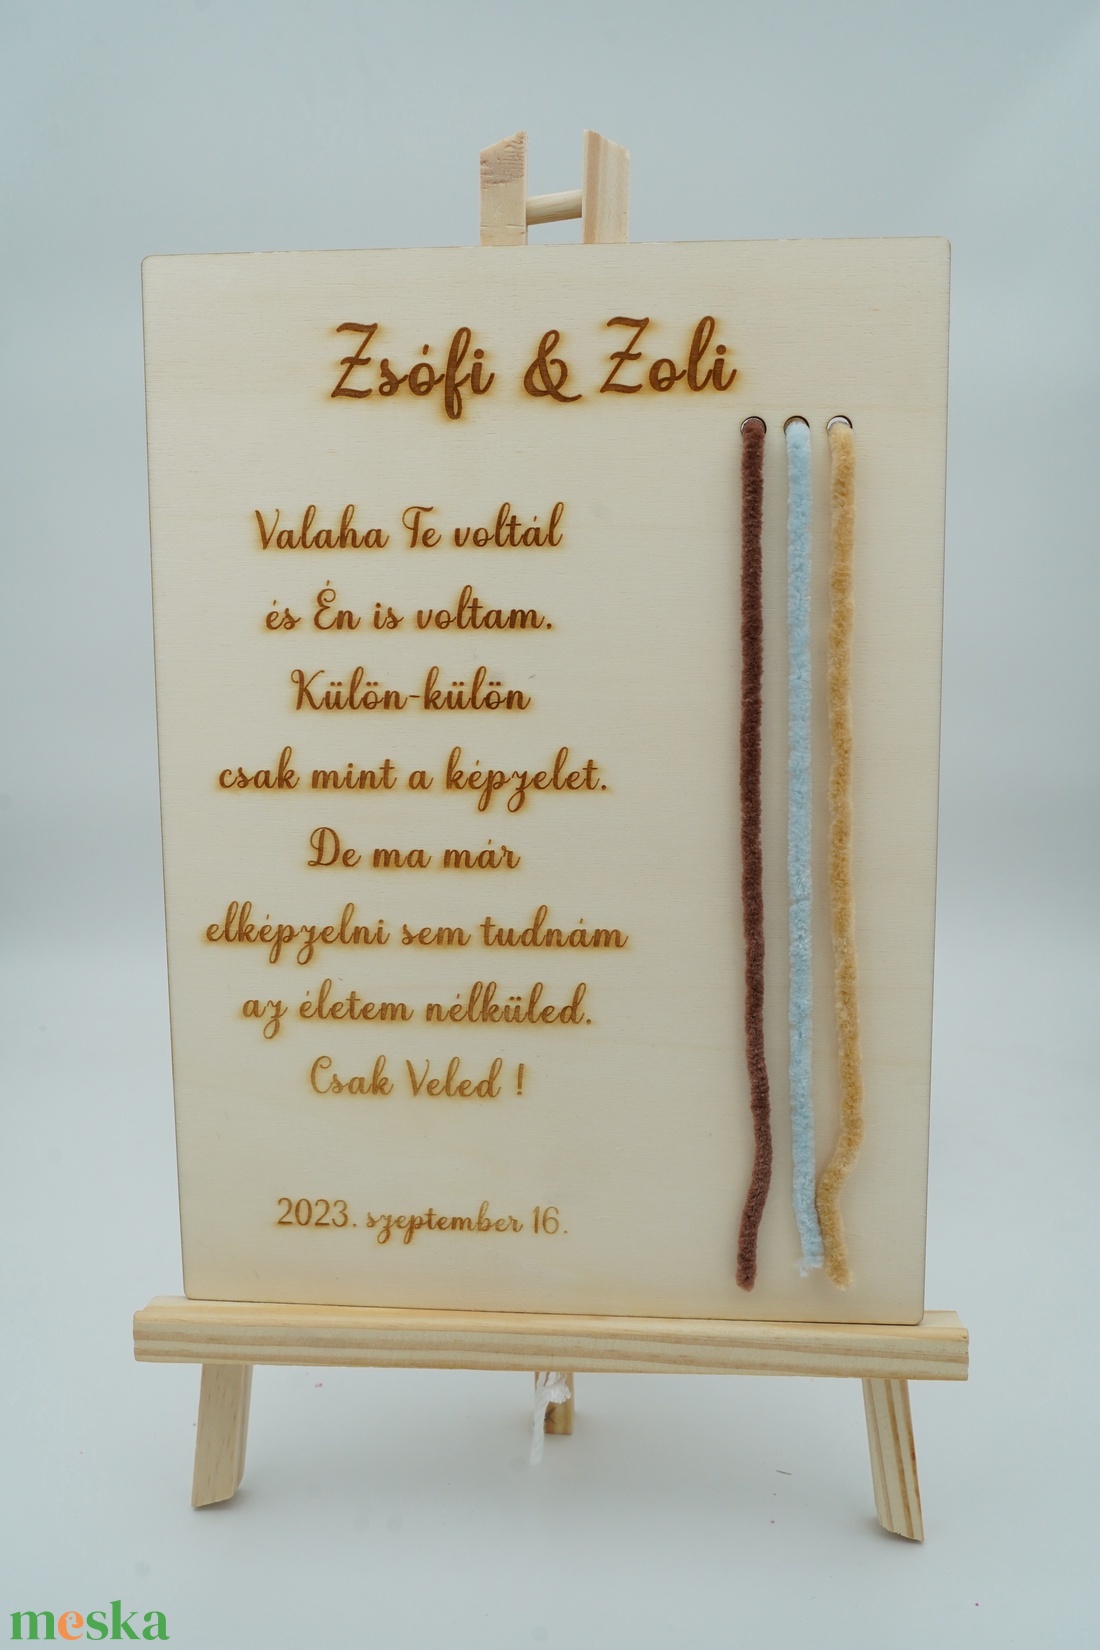 Zsófi & Zoli
Valaha Te voltál
és Én is voltam.
Külön-külön
csak mint a képzelet.
De ma már
elképzelni sem tudnám
az életem nélküled.
Csak Veled !
2023. szeptember 16.
meska